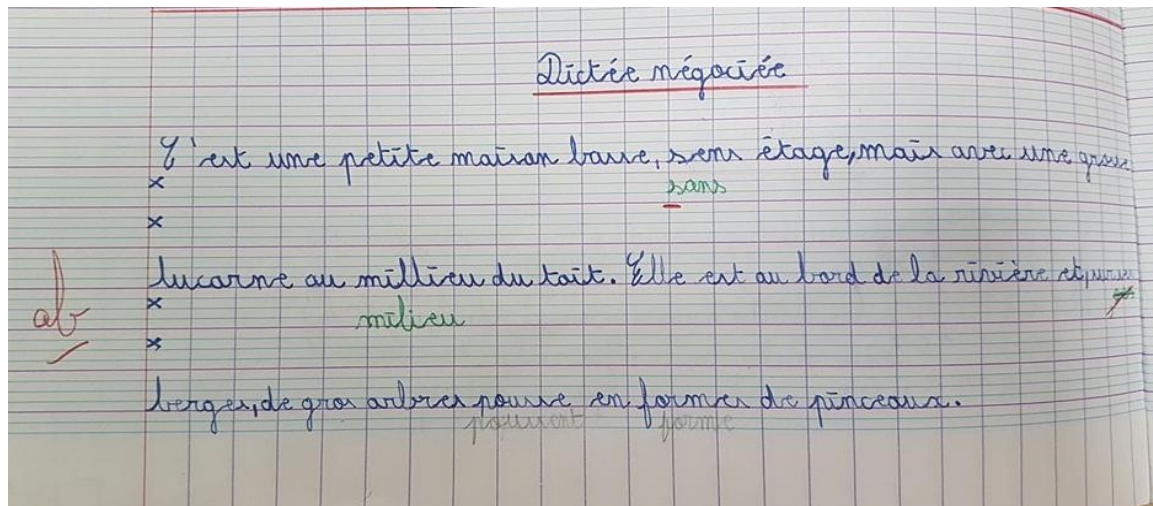 Dictée négociée
C'est une petite maison basse, sens étage, mais avec une grosse
sans
lucarne au millieu du toit. Elle est au bord de la rivière et
ab
milieu
berges, de gros arbres pousse en formes de pinceaux.
poussent forme